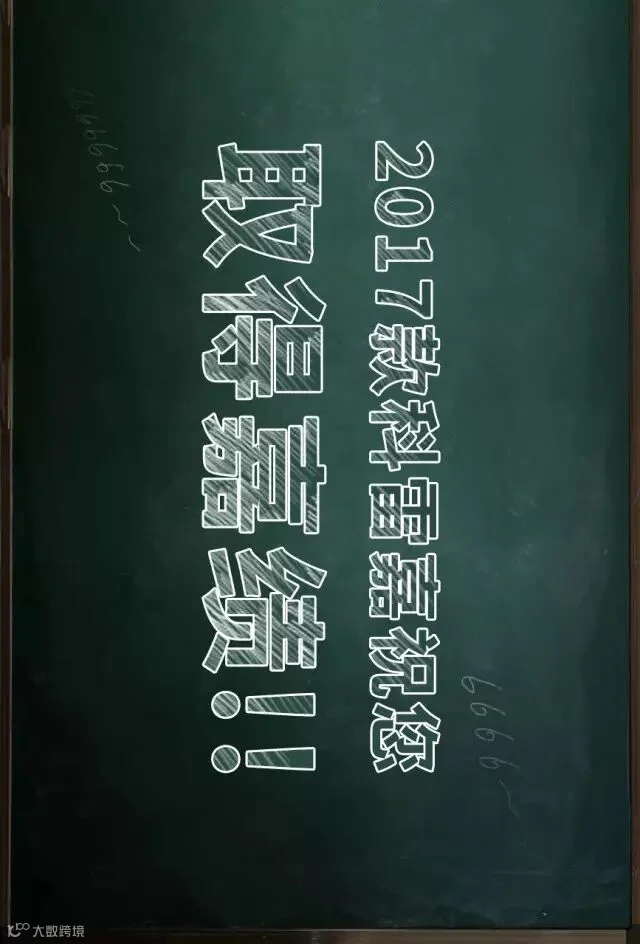 2017款科雷嘉祝您
取得嘉绩!!
6666~
大数跨境